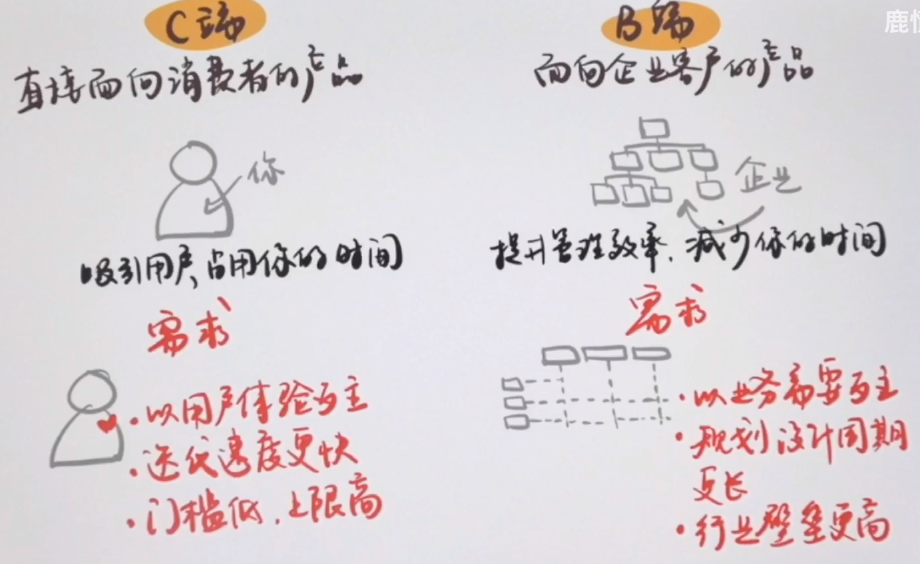 C端
直接面向消费者的产品
你
吸引用户、占用你的时间
需求
·以用户体验为主
·迭代速度更快
·门槛低,上限高
B端
面向企业客户的产品
企业
提升管理效率、减少你的时间
需求
·以业务需要为主
·规划设计周期
更长
·行业壁垒更高